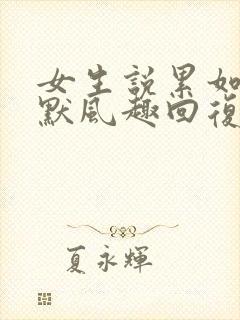 女生說累如
默風趣回復
夏永輝